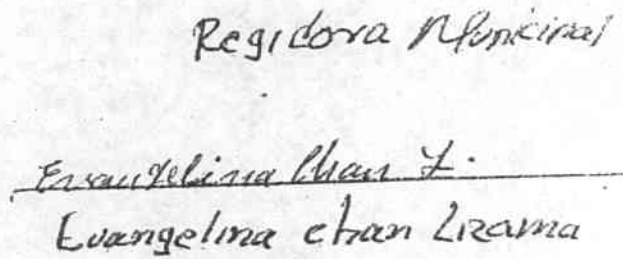 Regidora Municipal
Evangelina Chan L.
Evangelina chan Lizama